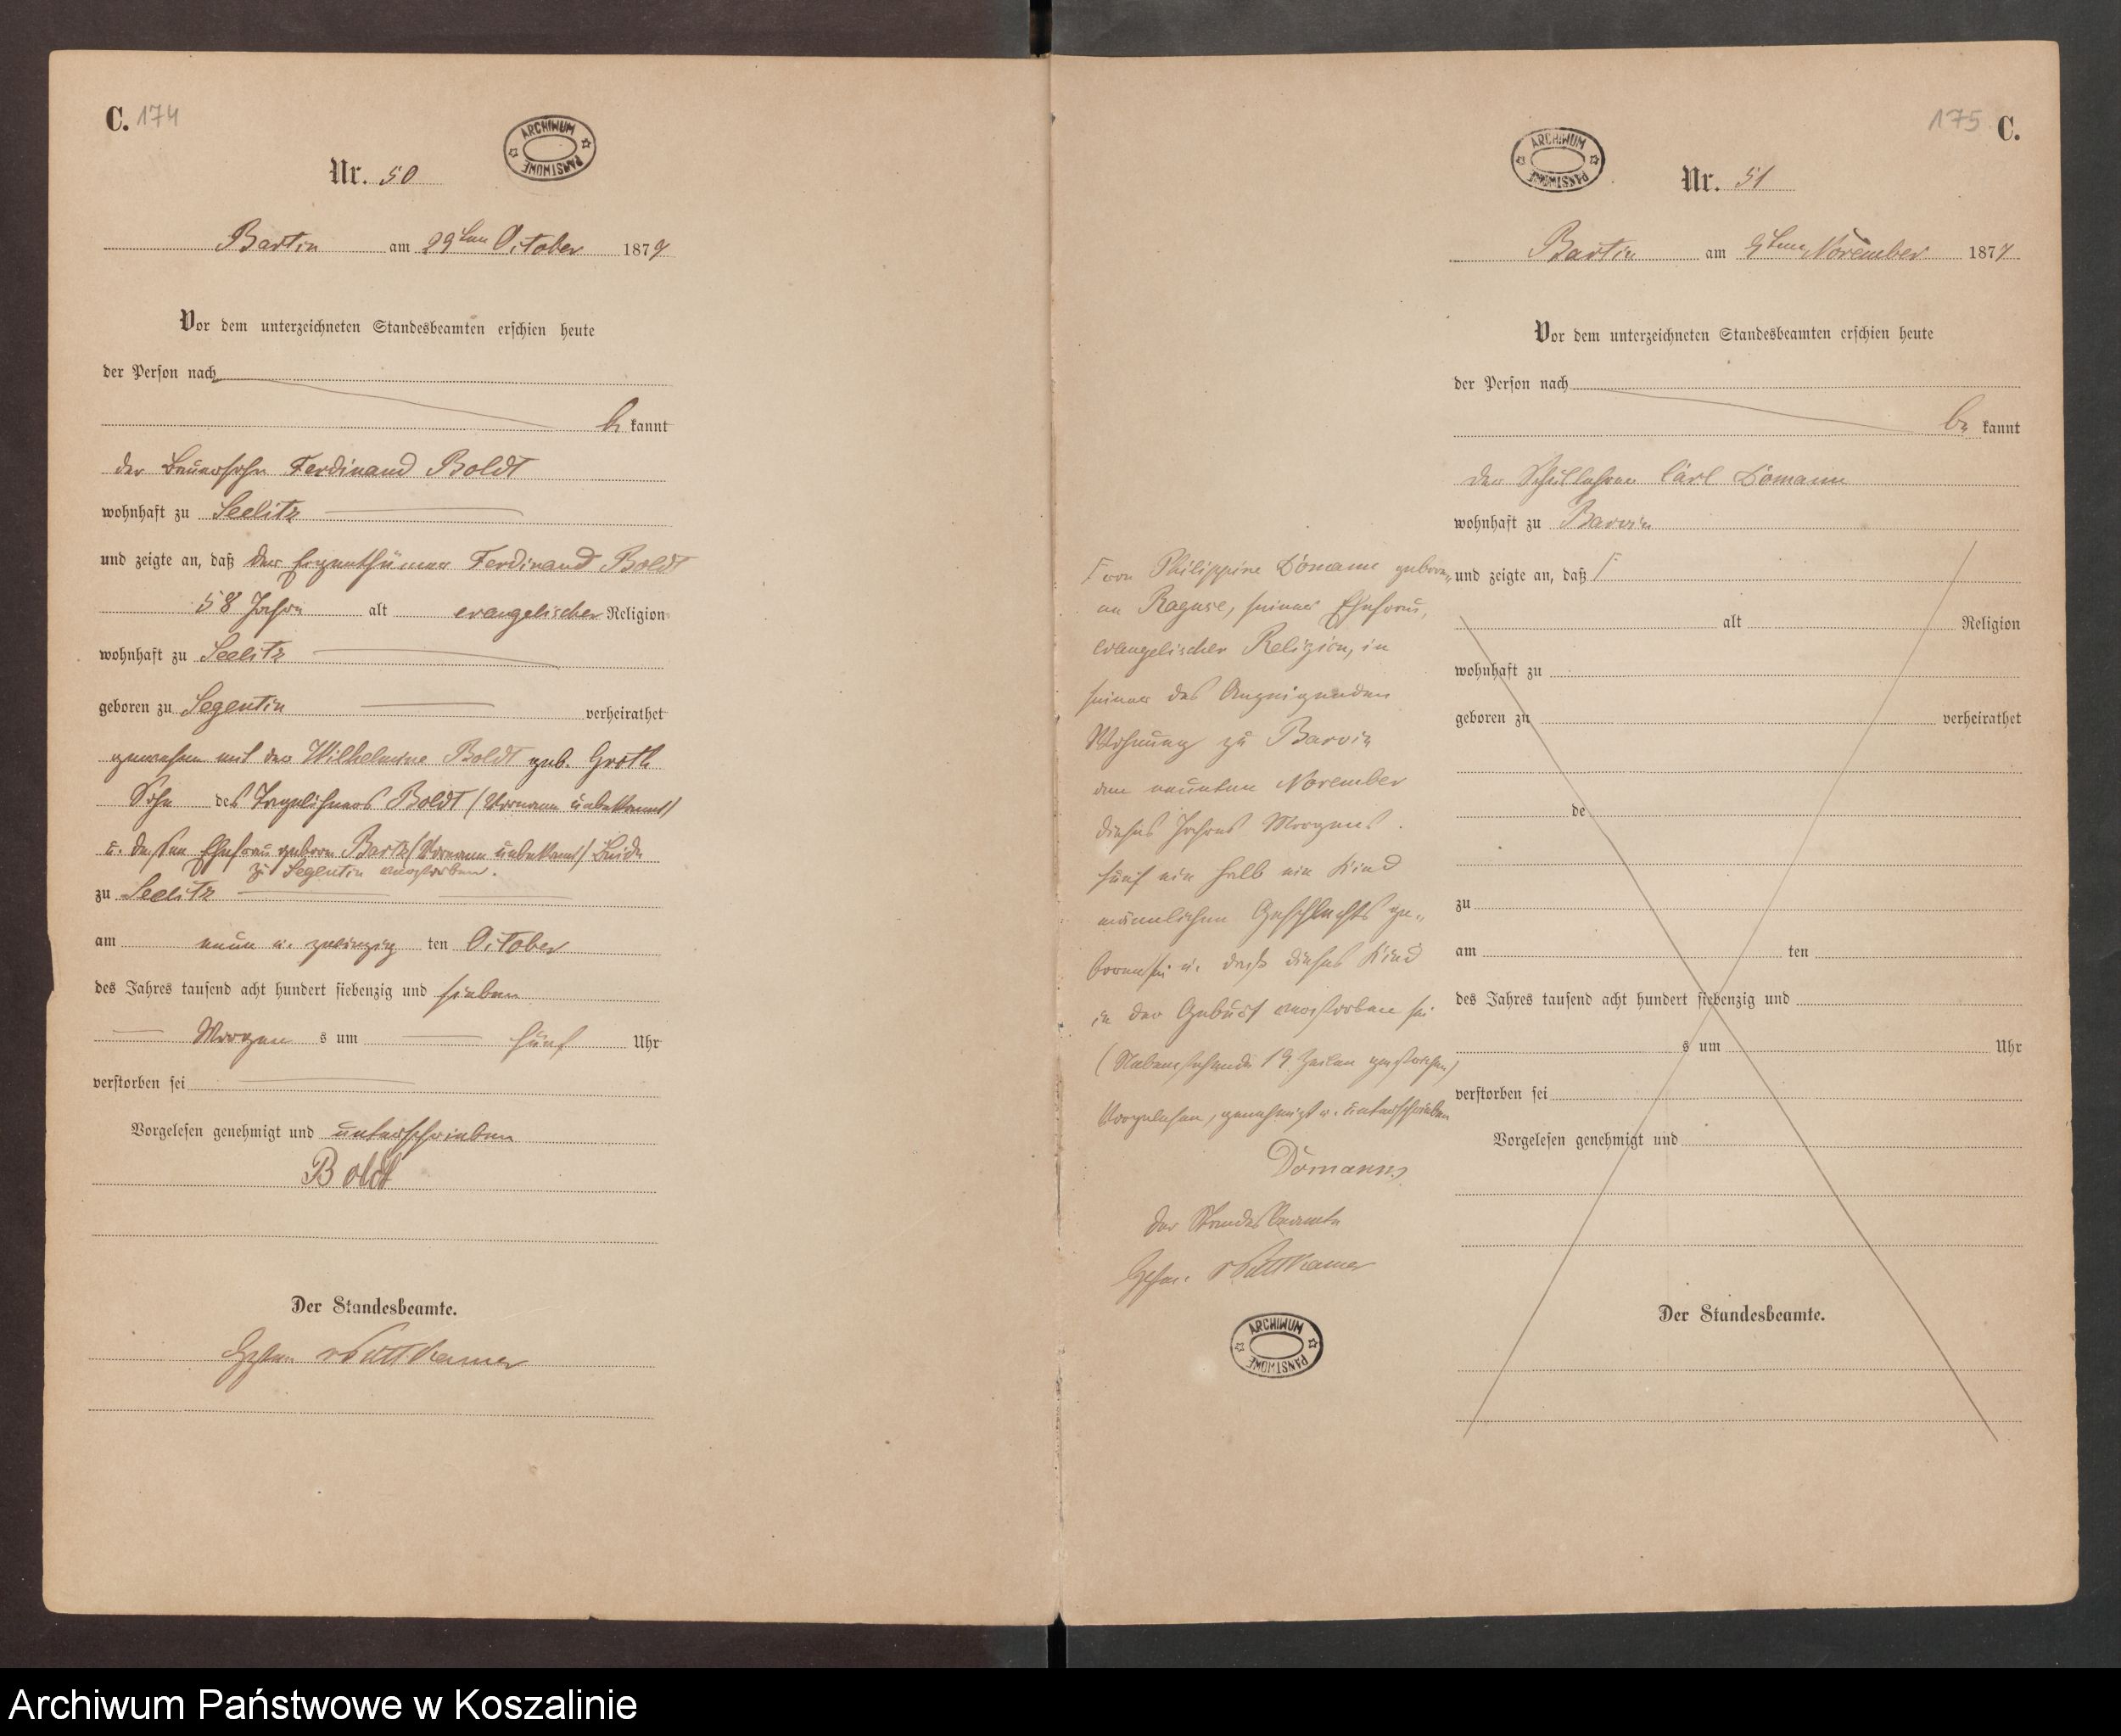 C. 174
ARCHIWUM PAŃSTWOWE
Nr. 50
Bartin am 29ten October 1877
Vor dem unterzeichneten Standesbeamten erschien heute
der Person nach
be kannt
der Bauersohn Ferdinand Boldt
wohnhaft zu Seelitz
und zeigte an, daß der Eigenthümer Ferdinand Boldt
58 Jahre alt evangelischer Religion
wohnhaft zu Seelitz
geboren zu Segentin verheirathet
gewesen mit der Wilhelmine Boldt geb. Groth
Sohn des Tagelöhners Boldt (Vorname unbekannt)
u. dessen Ehefrau geborne Bartz (Vorname unbekannt) Beide
zu Segentin verstorben.
zu Seelitz
am neun u. zwanzig ten October
des Jahres tausend acht hundert siebenzig und sieben
Morgen s um fünf Uhr
verstorben sei
Vorgelesen genehmigt und unterschrieben
Boldt
Der Standesbeamte.
v Puttkamer
175 C.
ARCHIWUM PAŃSTWOWE
Nr. 51
Bartin am 9ten November 1877
Vor dem unterzeichneten Standesbeamten erschien heute
der Person nach
be kannt
der Schullehrer Carl Dömann
wohnhaft zu Barvin
und zeigte an, daß Γ
alt Religion
wohnhaft zu
geboren zu verheirathet
de
zu
am ten
des Jahres tausend acht hundert siebenzig und
s um Uhr
verstorben sei
Vorgelesen genehmigt und
Der Standesbeamte.
Γ von Philippine Dömann gebore-
nen Raguse, seiner Ehefrau,
evangelischer Religion, in
seiner des Anzeigenden
Wohnung zu Barvin
den neunten November
dieses Jahres Morgens
fünf ein halb ein Kind
männlichen Geschlechts ge-
boren sei u. daß dieses Kind
in der Geburt verstorben sei
(Nebenstehende 19 Zeilen gestrichen)
Vorgelesen, genehmigt u. unterschrieben
Dömann
Der Standesbeamte
v Puttkamer
ARCHIWUM PAŃSTWOWE
Archiwum Państwowe w Koszalinie